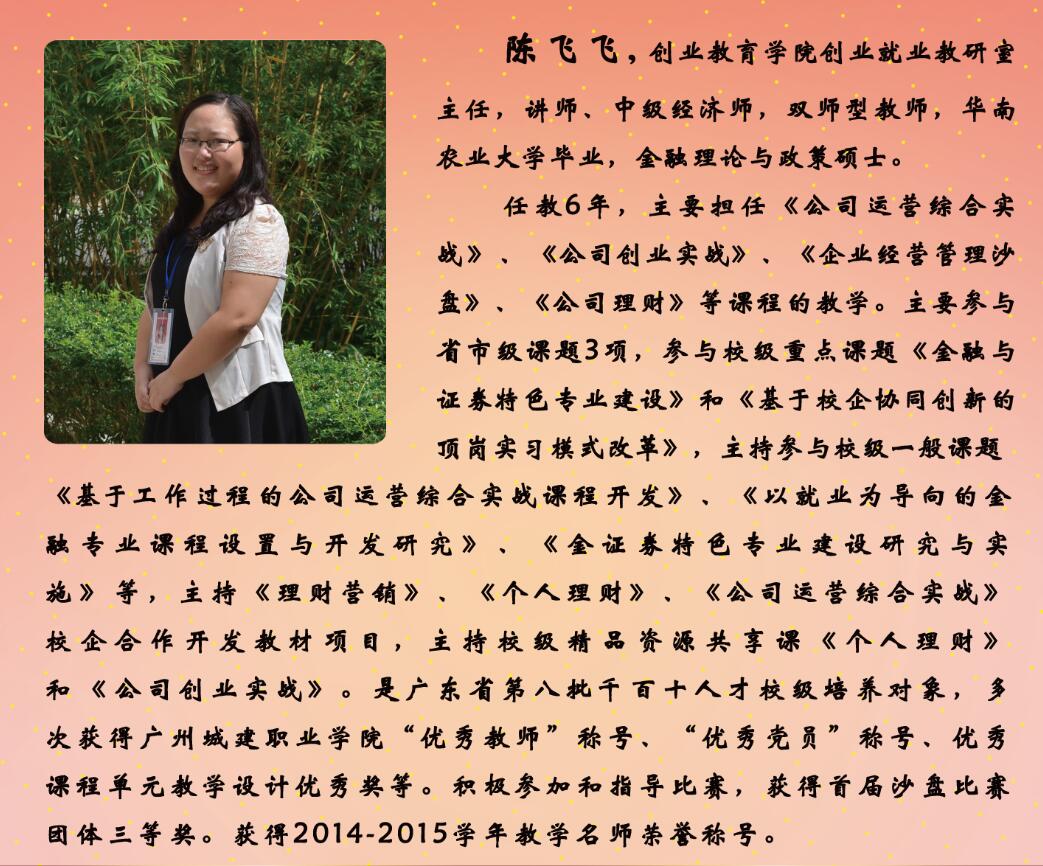 陈飞飞，创业教育学院创业就业教研室
主任，讲师、中级经济师，双师型教师，华南
农业大学毕业，金融理论与政策硕士。
任教6年，主要担任《公司运营综合实
战》、《公司创业实战》、《企业经营管理沙
盘》、《公司理财》等课程的教学。主要参与
省市级课题3项，参与校级重点课题《金融与
证券特色专业建设》和《基于校企协同创新的
顶岗实习模式改革》，主持参与校级一般课题
《基于工作过程的公司运营综合实战课程开发》、《以就业为导向的金
融专业课程设置与开发研究》、《金证券特色专业建设研究与实
施》等，主持《理财营销》、《个人理财》、《公司运营综合实战》
校企合作开发教材项目，主持校级精品资源共享课《个人理财》
和《公司创业实战》。是广东省第八批千百十人才校级培养对象，多
次获得广州城建职业学院“优秀教师”称号、“优秀党员”称号、优秀
课程单元教学设计优秀奖等。积极参加和指导比赛，获得首届沙盘比赛
团体三等奖。获得2014-2015学年教学名师荣誉称号。